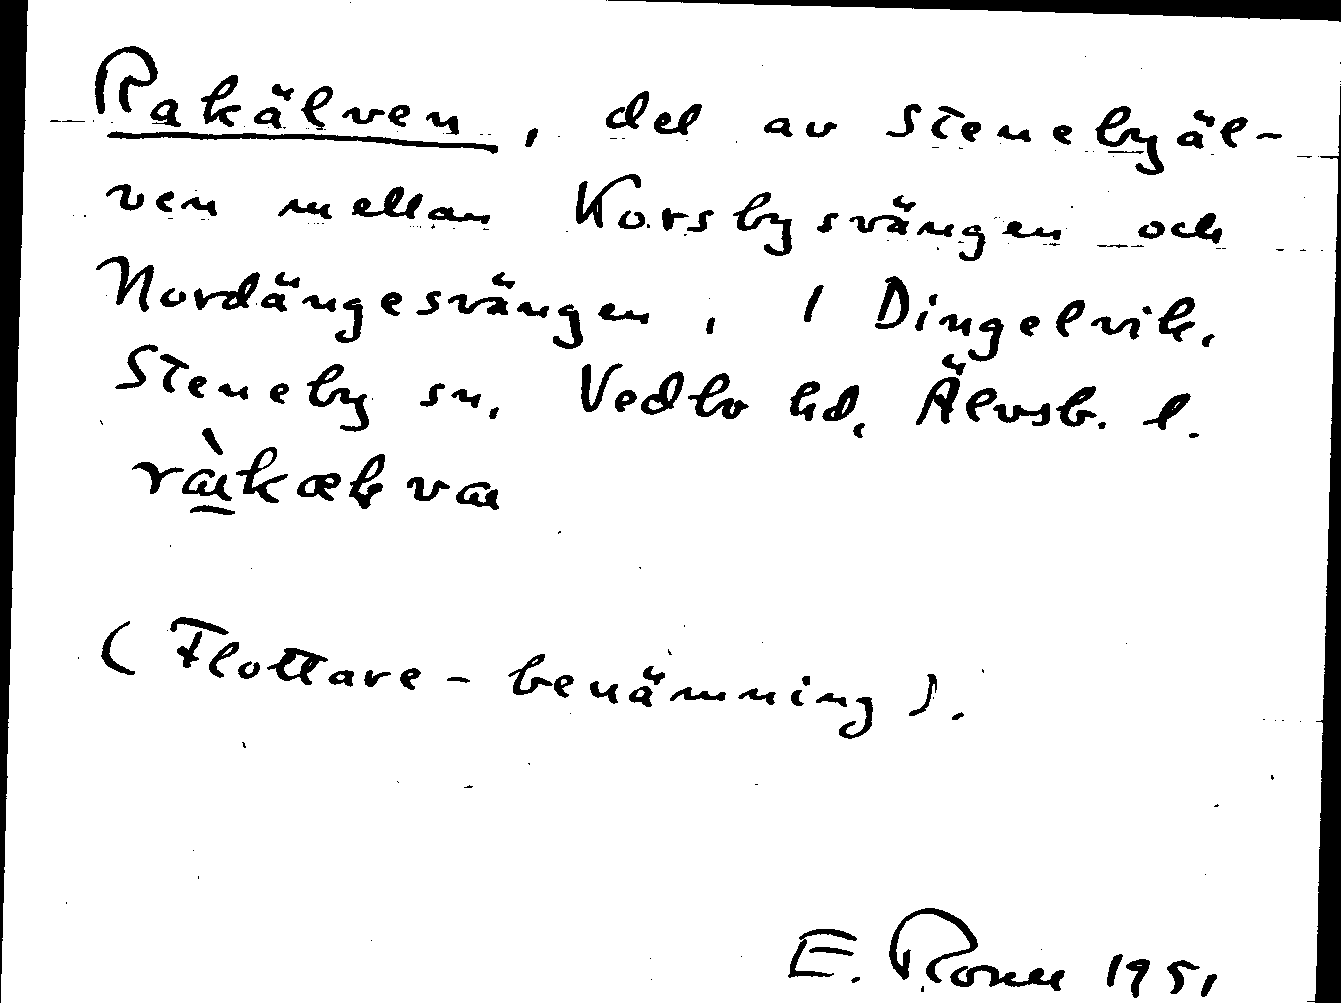 Rakälven, del av Stenebyäl-
ven mellan Korsbysvängen och
Nordängesvängen, i Dingelvik,
Steneby sn, Vedbo hd, Älvsb. l.
(Flottare-benämning).
E. 1951